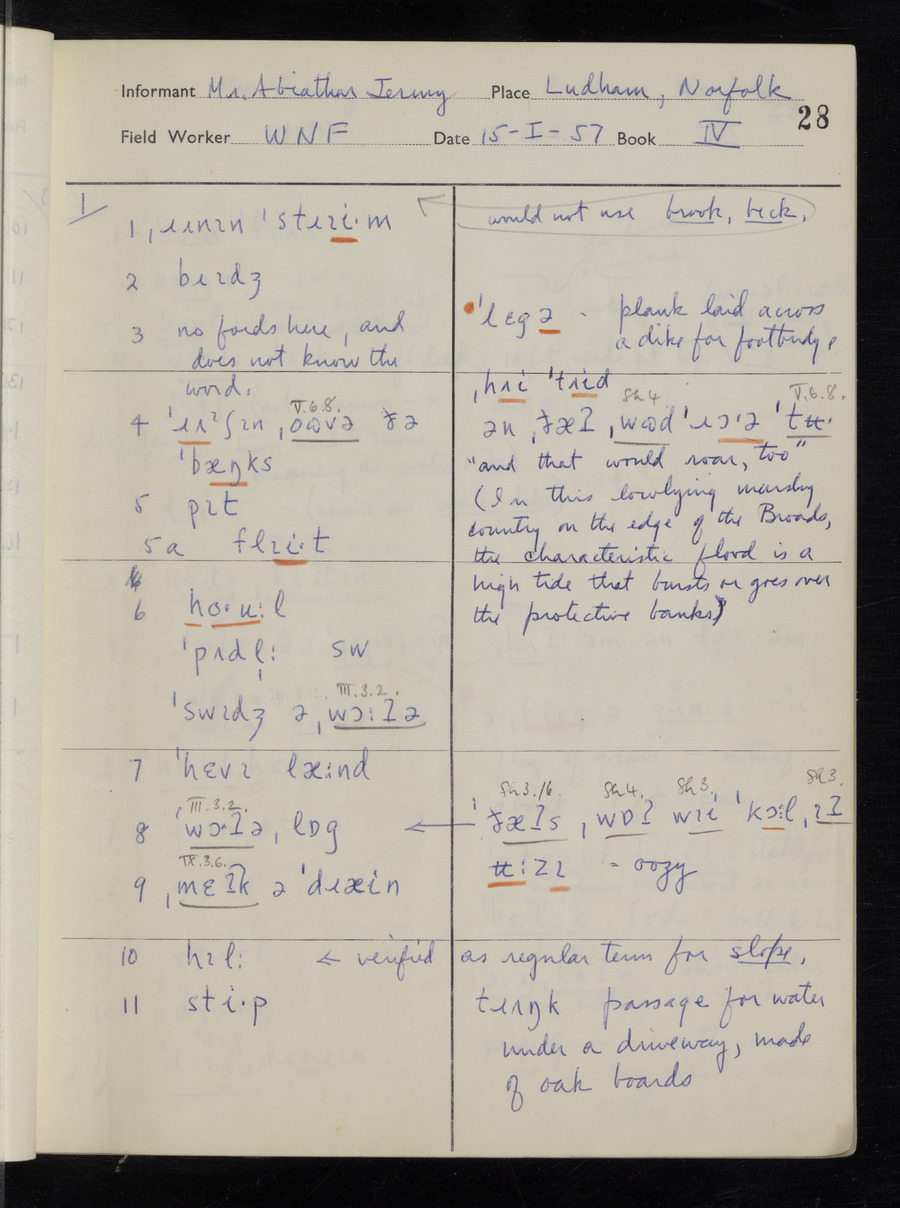 Informant Mr. Abiathar Jermy Place Ludham, Norfolk
28
Field Worker WNF Date 15-I-57 Book IV
1
1 ˌɹʌnɪn ˈstɹɪi·m
would not use brook, beck.
2 bɹɪdʒ
3 no fords here, and
does not know the
word.
ˈlɛgə - plank laid across
a dike for footbridge
V.6.8.
4
ðə
ˈbæŋks
5 pɪt
5a flɪi·t
Sh 4
V.6.8.
"and that would roar, too"
(In this lowlying marshy
country on the edge of the Broads,
the characteristic flood is a
high tide that bursts or goes over
the protective banks)
6
ˈpʌdl̩: sw
III.3.2.
ˈswɪdʒ ə ˌwɔ:ʔə
7 ˈhɛvɪ læ:nd
III.3.2.
8 ˈwɔ·ʔə ˌlɒg
Sh 3./6. Sh 4. Sh 3. Sh 3.
ˈðæʔs ˌwɒʔ wɪi ˈkɔ:l ˌɪʔ
IX.3.6.
9 ˌmɛʔk ə ˈdɹæin
ʉ:zɪ = oozy
10 hɪl: ← verified as regular term for slope.
11 sti·p
tɹʌŋk passage for water
under a driveway, made
of oak boards